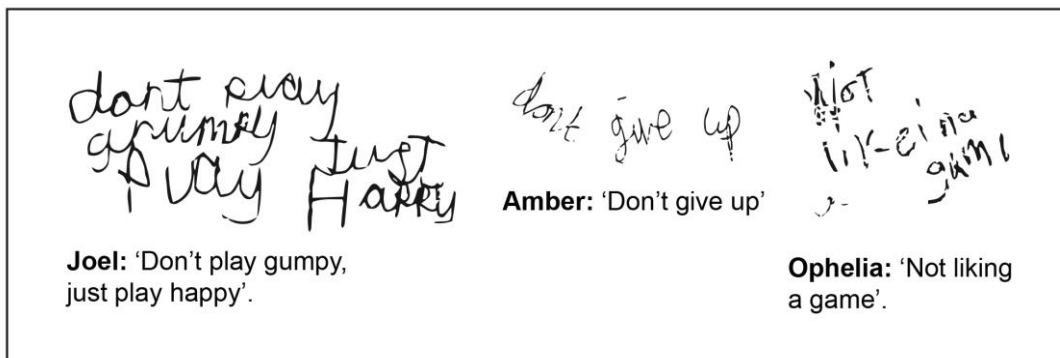 dont play
grumpy just
Play Happy
Joel: ‘Don’t play gumpy,
just play happy’.
dont give up
Amber: ‘Don’t give up’
Not
game
Ophelia: ‘Not liking
a game’.